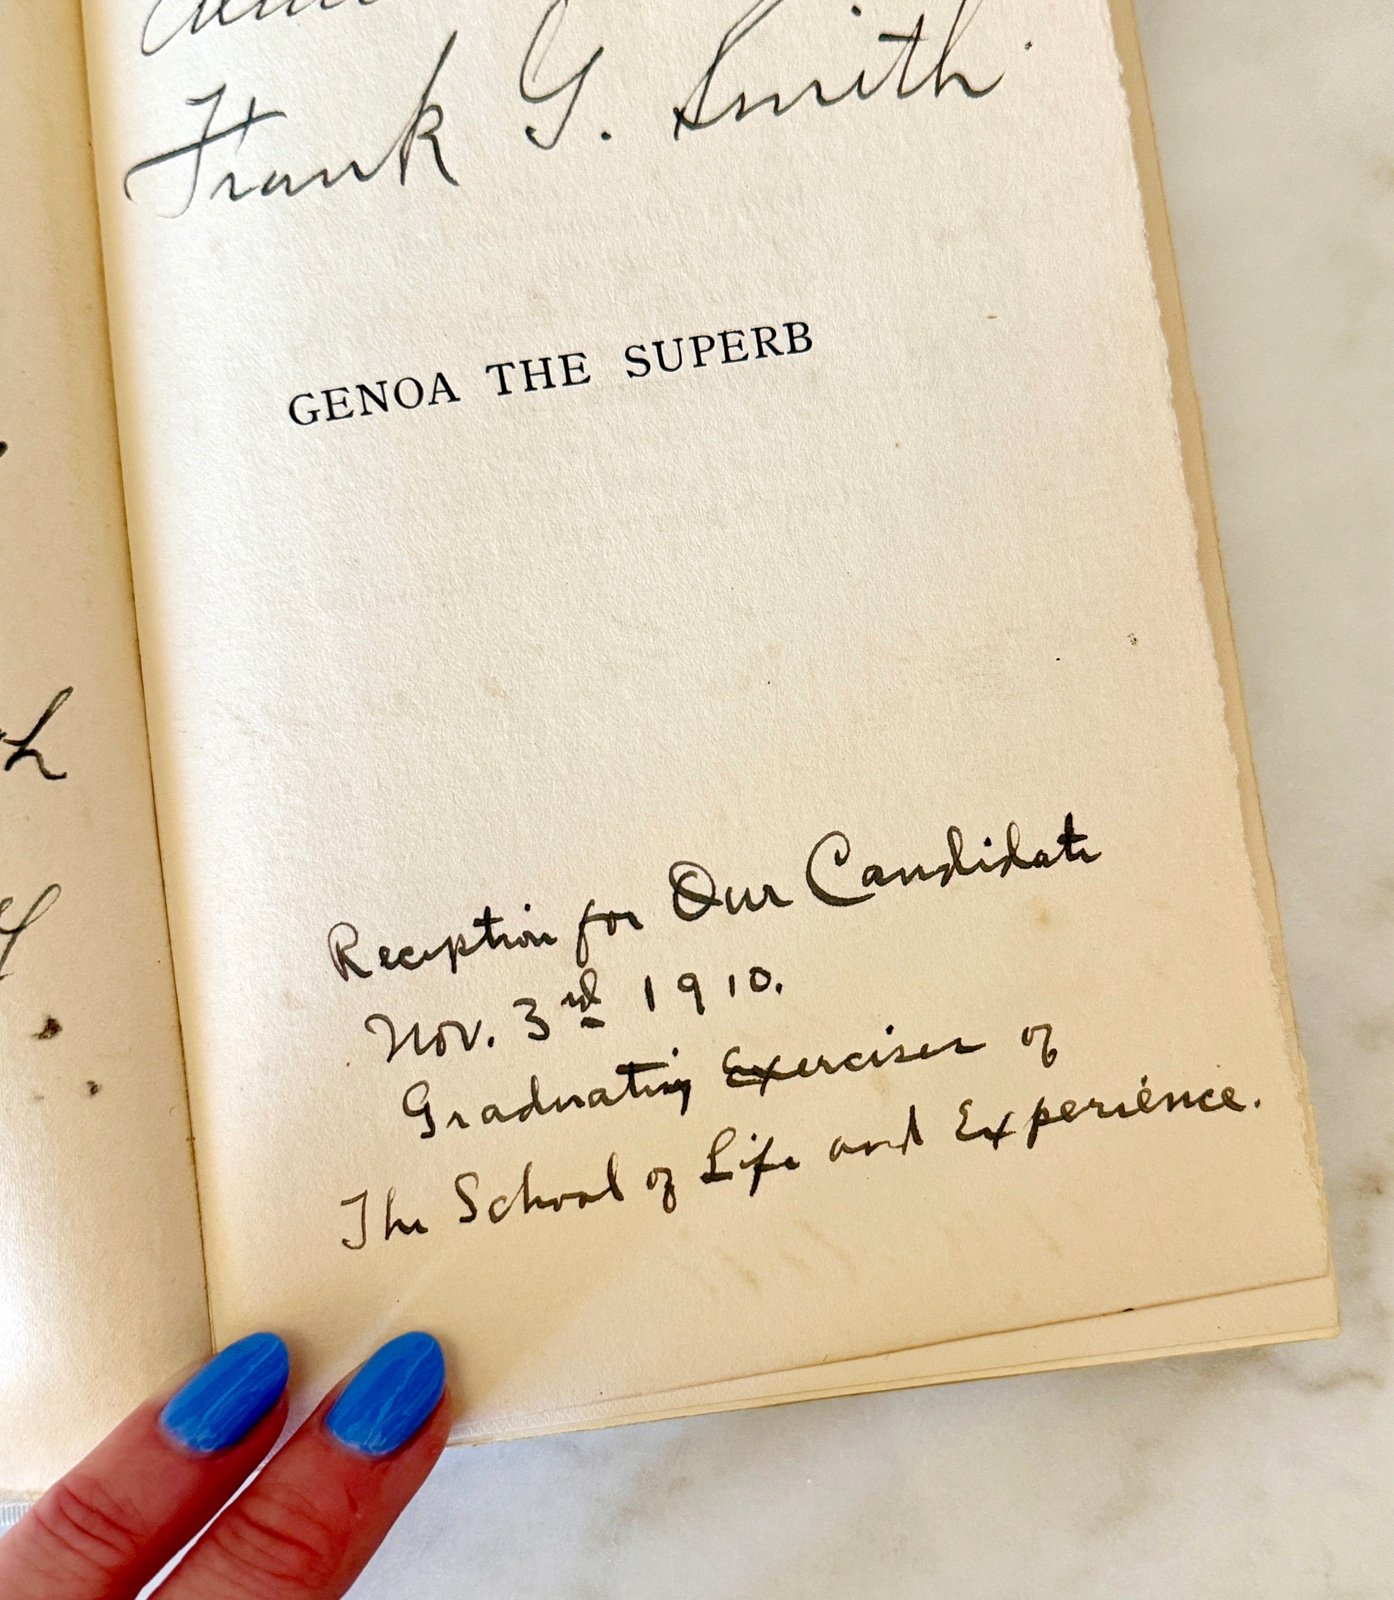 Frank G. Smith.
GENOA THE SUPERB
Reception for Our Candidate
Nov. 3rd 1910.
Graduating Exercises of
The School of Life and Experience.